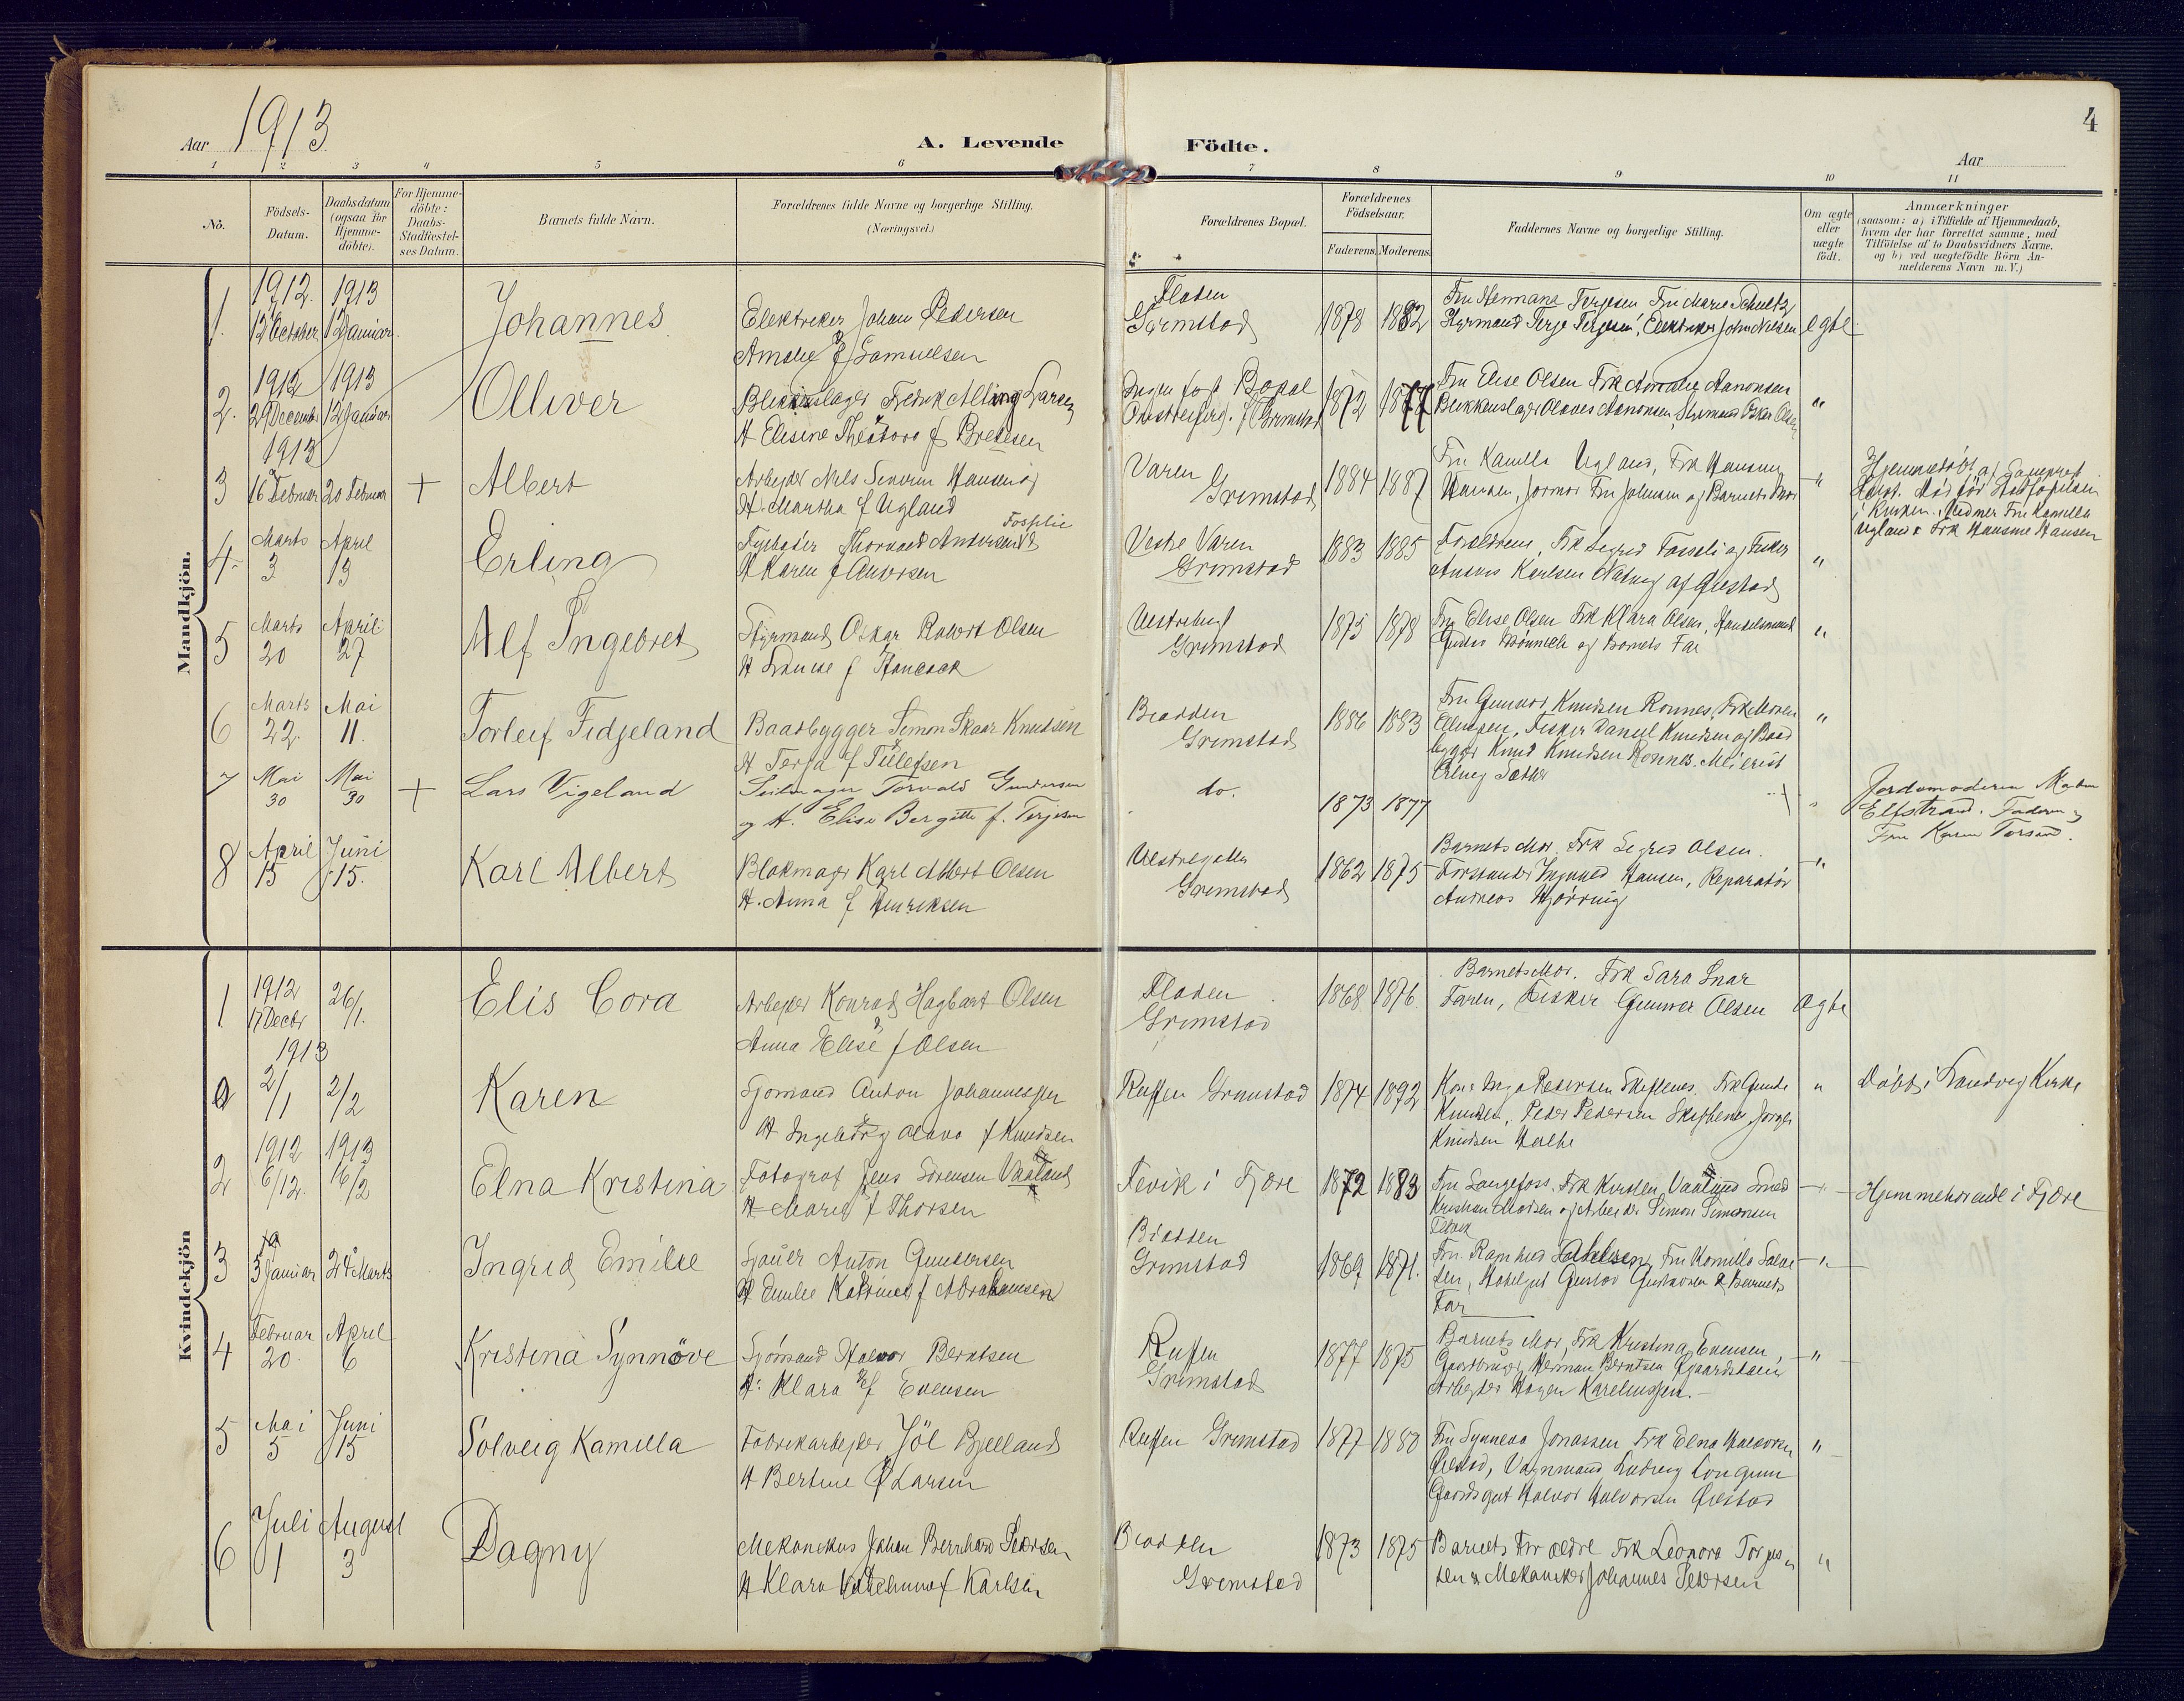 4
Aar 1913
A. Levende Födte.
Aar
1 2 3 4 5 6 7 8 9 10 11
No.
Födsels-
Datum.
Daabsdatum
(ogsaa for
Hjemme-
döbte).
For Hjemme-
döbte:
Daabs-
Stadfæstel-
ses Datum.
Barnets fulde Navn.
Forældrenes fulde Navne og borgerlige Stilling.
(Næringsvei.)
Forældrenes Bopæl.
Forældrenes
Födselsaar.
Faderens. Moderens.
Faddernes Navne og borgerlige Stilling.
Om ægte
eller
uægte
födt.
Anmærkninger
(saasom: a) i Tilfælde af Hjemmedaab,
hvem der har forrettet samme, med
Tilföielse af to Daabsvidners Navne.
og b) ved uægtefödte Börn An-
melderens Navn m. V.)
Mandkjön.
1. 1912 12 October 1913 12 Januar Johannes
Elektriker Johan Pedersen
Amalie f Samuelsen
Floden
Grimstad
1878 1882
Fru Hermana Terjesen Fru Marie Schultz
Styrmand Terje Terjesen, Elektriker John Nielsen
egte
2. 1912 29 Decembr 1913 12 Januar Olliver
Blikkenslager Fredrik Larsen
H Elisine Theodora f
Ingen fast Bopæl
1872 1877
Fru Elise Olsen Frk Amalie Aanonsen
Blikkenslager Olaves Aanonsen, Styrmand Oskar Olsen
"
1913
3 16 Februar 20 Februar + Albert
Arbejder Niels Severin Hansen og
H. Martha f Ugland
Varen
Grimstad
1884 1887
Fru Kamilla Ugland, Frk Hansine
Hansen, Jormor Fru Johnsen og Barnets Mor
"
Hjemmedöbt af Sogneprest
i Kirken. Vidner Fru Kamilla
Ugland & Frk Hansine Hansen
4 Marts 3 April 13 Erling
Fyrböder Thorvald Andersen Fosselie
H Karen f Andersen
Vestre Varen
Grimstad
1883 1885
Forældrene, Frk Sigrid Fosseli og Fisker
Anders Karlsen af Öiestad
"
5 Marts 20 April 27 Alf Ingebret
Styrmand Oskar Robert Olsen
H Louise f Hancock
Vestrebugt
Grimstad
1875 1878
Fru Elise Olsen Frk Klara Olsen, Handelsmand
og Barnets Far
"
6 Marts 22. Mai 11. Torleif Fidjeland
Baadbygger Simon Skaar Knudsen
H Terja f Tellefsen
Bradden
Grimstad
1886 1883
Fru Gunvor Knudsen Ronnes, Frk Maren
Ellingsen, Fisker Daniel Knudsen og Baad
bygger Knud Knudsen Ronnes. Meierist
Erling Sæther
"
7 Mai 30 Mai 30 + Lars Vigeland
Seilmager Torvald Gundersen
og H. Elise Bergitte f. Terjesen
do.
1873 1877
"
Jordemoderen
Elfstrand. Faderen og
Fru Karen
8 April 15 Juni 15. Karl Albert
Blokmager Karl Albert Olsen
H. Anna f Henriksen
Vestregate
Grimstad
1862 1875
Barnets Mor. Frk Sigrid Olsen.
Forstander Hansen, Reparatör
Andreas Hjörring
"
Kvindekjön
1 1912 17 Decbr 26/1. Elis Cora
Arbejder Konrad Hagbart Olsen
Anna Elise f Olsen
Floden
Grimstad
1868 1876.
Barnets Mor. Frk Sara Snar
Faren, Fisker Gunvor Olsen
Ægte
1913
2/1 2/2 Karen
Sjömand Anton Johannessen
H Ingeborg Olava f Knudsen
Ruffen Grimstad
1874 1892
Kone Inga Pedersen Skiftenes. Frk Gunda
Knudsen, Peder Pedersen Skiftenes, Jörgen
Knudsen
"
Döbt i Landvig Kirke
2 1912 6/12. 1913 16/2 Elna Kristina
Fotograf Jens Sörensen Vaaland
H Marie f Thorsen
Fevik i Fjære
1872 1883
Fru Langefoss. Frk Kirsten Vaaland Smed
Kristian Madsen og Arbeider Simon Simonsen
Fevik
Hjemmehörende i Fjære
3 3 Januar 24 Marts Ingrid Emilie
Sjauer Anton Gundersen
H Emilie Katrine f Abrahamsen
Bradden
Grimstad
1869 1871.
Fru Ragnhild Fru Kamilla
Gustav Gustavsen & Barnets
Far
"
4 Februar 20. April 6 Kristina Synnöve
Sjömand Halvor Berntsen
H. Klara f Evensen
Ruffen
Grimstad
1877 1875
Barnets Mor, Frk Kristina Evensen,
Gaardbruger Herman Berntsen
Arbejder Hagen Kareliussen.
"
5 Mai 5 Juni 15 Solveig Kamilla
Fabrikarbejder Joel Bjelland
H Bertine f Larsen
Ruffen Grimstad
1877 1880
Fru Synneva Jonassen Frk Elna Halvorsen
Öiestad, Vognmand Ludvig Longum
Gaardsgut Halvor Halvorsen Öiestad
"
6 Juli 1 August 3 Dagny
Mekanikus Johan Bernhard Pedersen
H Klara Vilhelmina f Karlsen
Bradden
Grimstad
1873 1875
Barnets Forældre Frk Leonora Torjus
sen & Mekaniker Johannes Pedersen
"